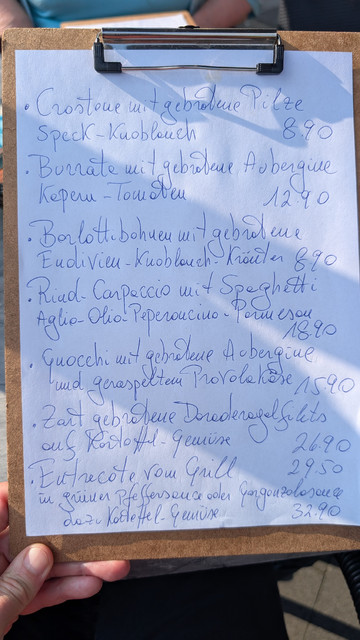 • Crostone mit gebratene Pilze
Speck-Knoblauch 8.90
• Burrata mit gebratene Aubergine
Kapern-Tomaten 12.90
• Borlottibohnen mit gebratene
Endivien-Knoblauch-Kräuter 8.90
• Rind-Carpaccio mit Spaghetti
Aglio-Olio-Peperoncino-Parmesan
18.90
• Gnocchi mit gebratene Aubergine
und geraspeltem Provolakäse 15.90
• Zart gebratene Doradenfilets
auf Kartoffel-Gemüse 26.90
• Entrecote vom Grill 29.50
in grüner Pfeffersauce oder Gorgonzolasauce
dazu Kartoffel-Gemüse 32.90